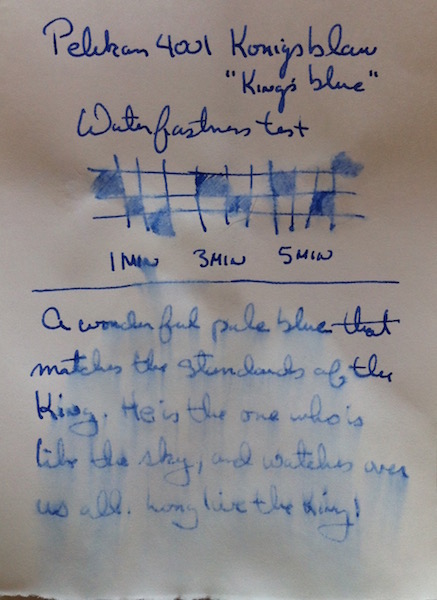 Pelikan 4001 Konigsblau
"King's blue"
Waterfastness test
1 MIN 3 MIN 5 MIN
A wonderful pale blue that
matches the standards of the
King. He is the one who is
like the sky, and watches over
us all. Long live the King!